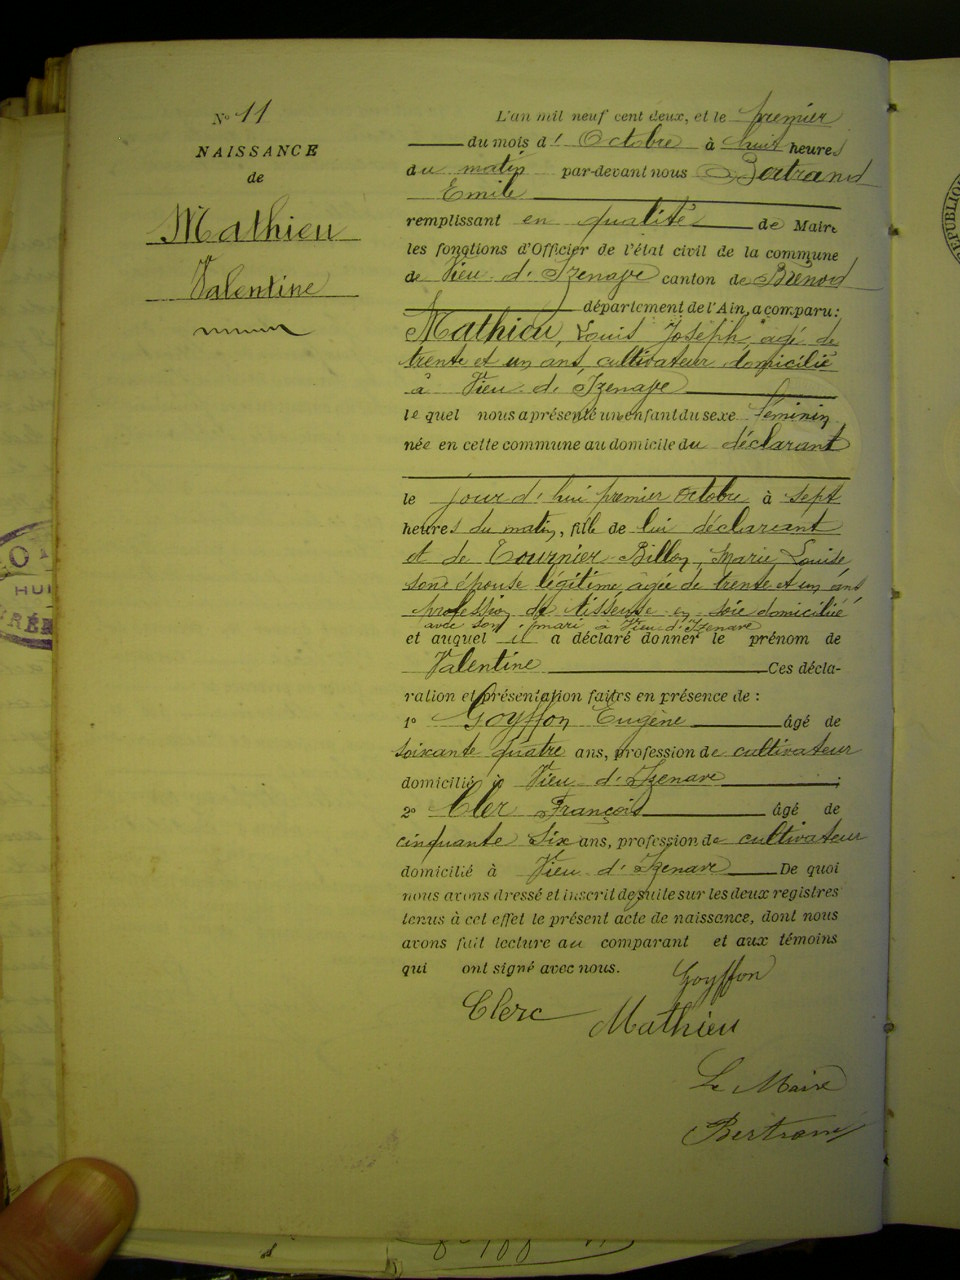 N° 11
NAISSANCE
de
Mathieu
Valentine
L'an mil neuf cent deux, et le premier
du mois d' Octobre à huit heures
du matin par-devant nous Bertrand
Emile
remplissant en qualité de Maire
les fonctions d'Officier de l'état civil de la commune
de Vieu-d'Izenave canton de Brénod
département de l'Ain, a comparu:
Mathieu, Louis Joseph, âgé de
trente et un ans, cultivateur domicilié
à Vieu-d'Izenave
le quel nous a présenté un enfant du sexe féminin
née en cette commune au domicile du déclarant
le jour d'hui premier Octobre à sept
heures du matin, fille de lui déclarant
et de Tournier-Billon, Marie Louise
son épouse légitime âgée de trente et un ans
profession de tisseuse en soie domiciliée
avec son mari à Vieu-d'Izenave
et auquel il a déclaré donner le prénom de
Valentine Ces décla-
ration et présentation faites en présence de :
1° Goyffon Eugène âgé de
soixante quatre ans, profession de cultivateur
domicilié à Vieu-d'Izenave ;
2° Clerc François âgé de
cinquante six ans, profession de cultivateur
domicilié à Vieu-d'Izenave De quoi
nous avons dressé et inscrit de suite sur les deux registres
tenus à cet effet le présent acte de naissance, dont nous
avons fait lecture au comparant et aux témoins
qui ont signé avec nous.
Goyffon
Clerc Mathieu
Le Maire
Bertrand